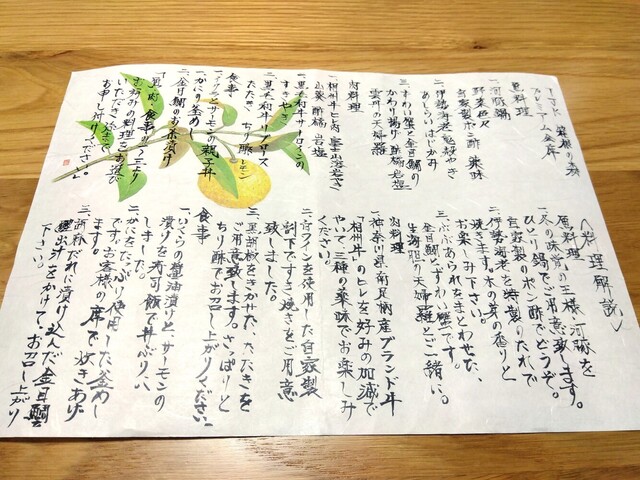 TJK 箱根の森
プレミアム会席
魚料理
一、河豚鍋
野菜色々
自家製ポン酢 薬味
二、伊勢海老鬼殻やき
あしらいはじかみ
三、ずわい蟹と金目鯛の
かわり揚げ 酢橘 岩塩
雲丹の天婦羅
肉料理
一、相州牛ヒレ肉 富士山溶岩やき
山葵 酢橘 岩塩
二、黒毛和牛サーロインの
すきやき
三、黒毛和牛
たたき ちり酢 レモン
食事
一、イクラとサーモンの親子丼
二、かにの釜めし
三、金目鯛のお茶漬け
魚、肉、食事の一〜三より
お好みの料理をお選び
いただき係りまで
お申し付けください。
〈料理解説〉
魚料理
一、冬の味覚の王様、河豚を
ひとり鍋でご用意致します。
自家製のポン酢でどうぞ。
二、伊勢海老を特製のたれで
焼きます。木の芽の香りと
お楽しみ下さい。
三、ぶぶあられをまとわせた、
金目鯛とずわい蟹です。
生海胆の天婦羅とご一緒に。
肉料理
一、神奈川県南足柄産ブランド牛
「相州牛」のヒレを好みの加減で
やいて、三種の薬味でお楽しみ
ください。
二、白ワインを使用した自家製
割下ですき焼きをご用意
致しました。
三、黒胡椒をきかせた、たたきを
ご用意致します。さっぱりと
ちり酢でお召し上がりください。
食事
一、いくらの醤油漬けとサーモンの
漬けを寿司飯で丼ぶりへ
しました。
二、かにをたっぷり使用した釜めし
です。お客様の席で炊きあげ
ます。
三、胡麻だれに漬け込んだ金目鯛
鰹出汁をかけて、お召し上がり
下さい。